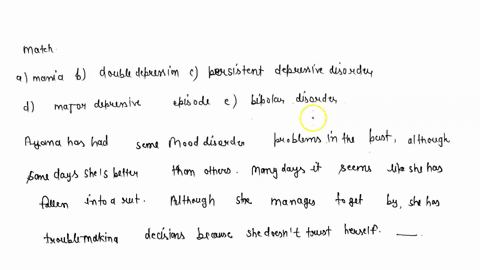 match.
a) mania b) double depression c) persistent depressive disorder
d) major depressive episode e) bipolar disorder
Ayana has had some mood disorder problems in the past, although
some days she's better than others. Many days it seems like she has
fallen into a rut. Although she manages to get by, she has
trouble making decisions because she doesn't trust herself. ___.